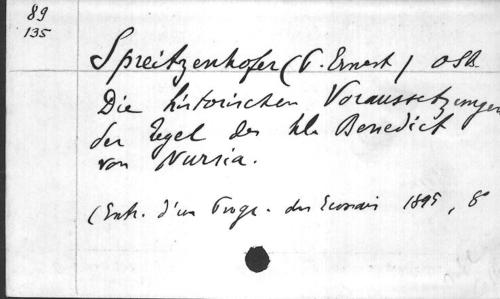 89
135
Spreitzenhofer (P. Ernest) OSB
Die historischen Voraussetzungen
der Regel des hl. Benedict
von Nursia.
(Extr. d'un Progr. des 1895, 8°